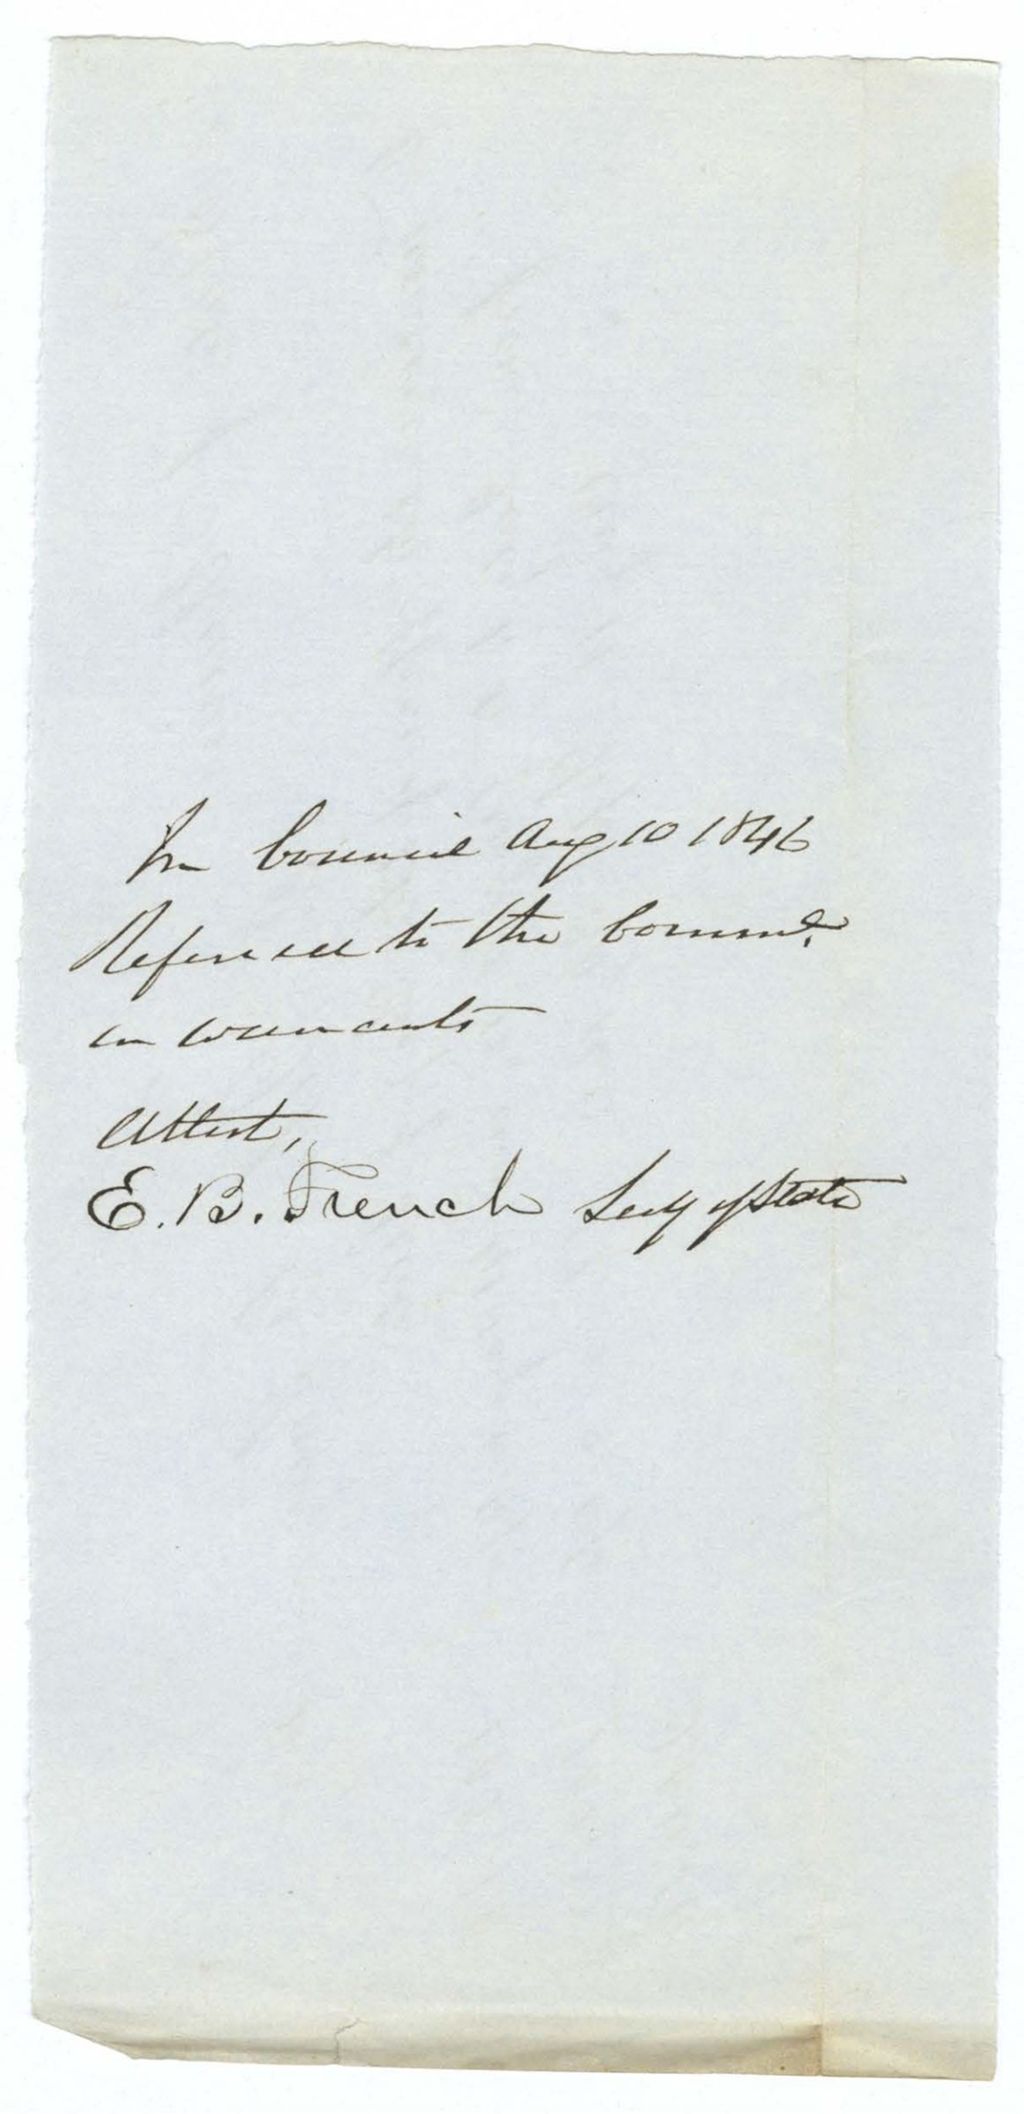 In Council Aug 10 1846
Referred to the Comme.
on warrants
Attest,
E. B. French Secy of State